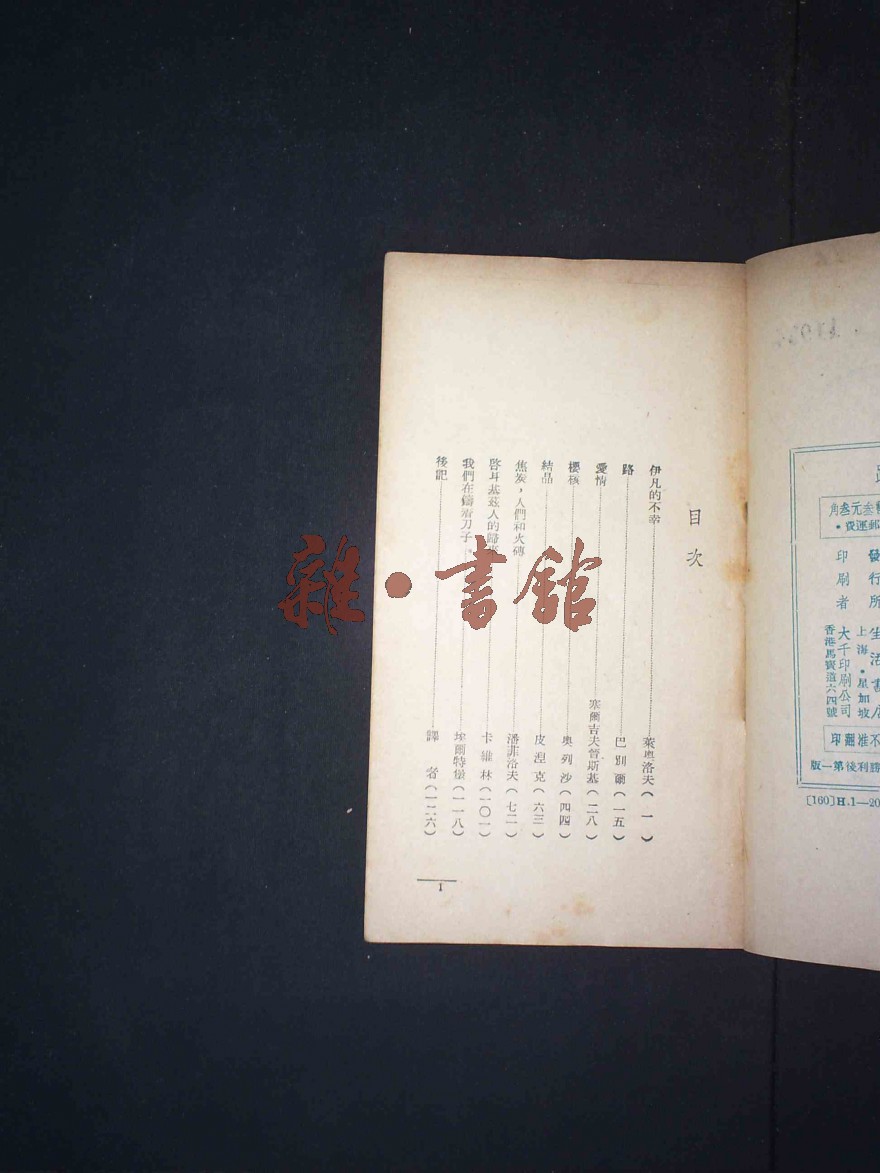 目次
伊凡的不幸……萊奧洛夫(一)
路……巴別爾(一五)
愛情……塞爾吉夫晉斯基(二八)
櫻核……奧列沙(四四)
結晶……皮涅克(六三)
焦炭，人們和火磚……潘菲洛夫(七二)
啓耳基茲人的歸……卡維林(一〇一)
我們在鑄着刀子……埃爾特堡(一一八)
後記……譯者(一二六)
1
雜•書館
元叁角
郵運費•
發行所
生活書店
上海•星加坡
印刷者
大千印刷公司
香港馬寶道六四號
不准翻印
勝利後第一版
[160]H.1—20